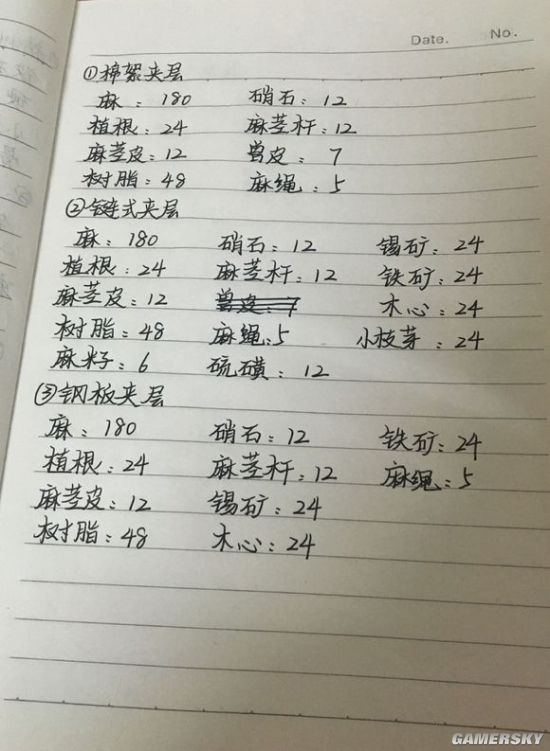 Date. No.
①棉絮夹层
麻：180 硝石：12
植根：24 麻茎杆：12
麻茎皮：12 兽皮：7
树脂：48 麻绳：5
②链式夹层
麻：180 硝石：12 锡矿：24
植根：24 麻茎杆：12 铁矿：24
麻茎皮：12 兽皮：7 木心：24
树脂：48 麻绳：5 小枝芽：24
麻籽：6 硫磺：12
③钢板夹层
麻：180 硝石：12 铁矿：24
植根：24 麻茎杆：12 麻绳：5
麻茎皮：12 锡矿：24
树脂：48 木心：24
GAMERSKY